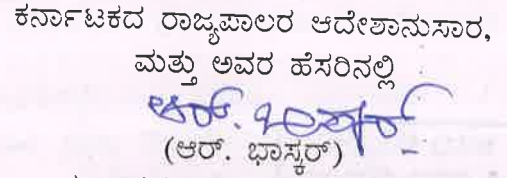 ಕರ್ನಾಟಕದ ರಾಜ್ಯಪಾಲರ ಆದೇಶಾನುಸಾರ,
ಮತ್ತು ಅವರ ಹೆಸರಿನಲ್ಲಿ
(ಆರ್. ಭಾಸ್ಕರ್)